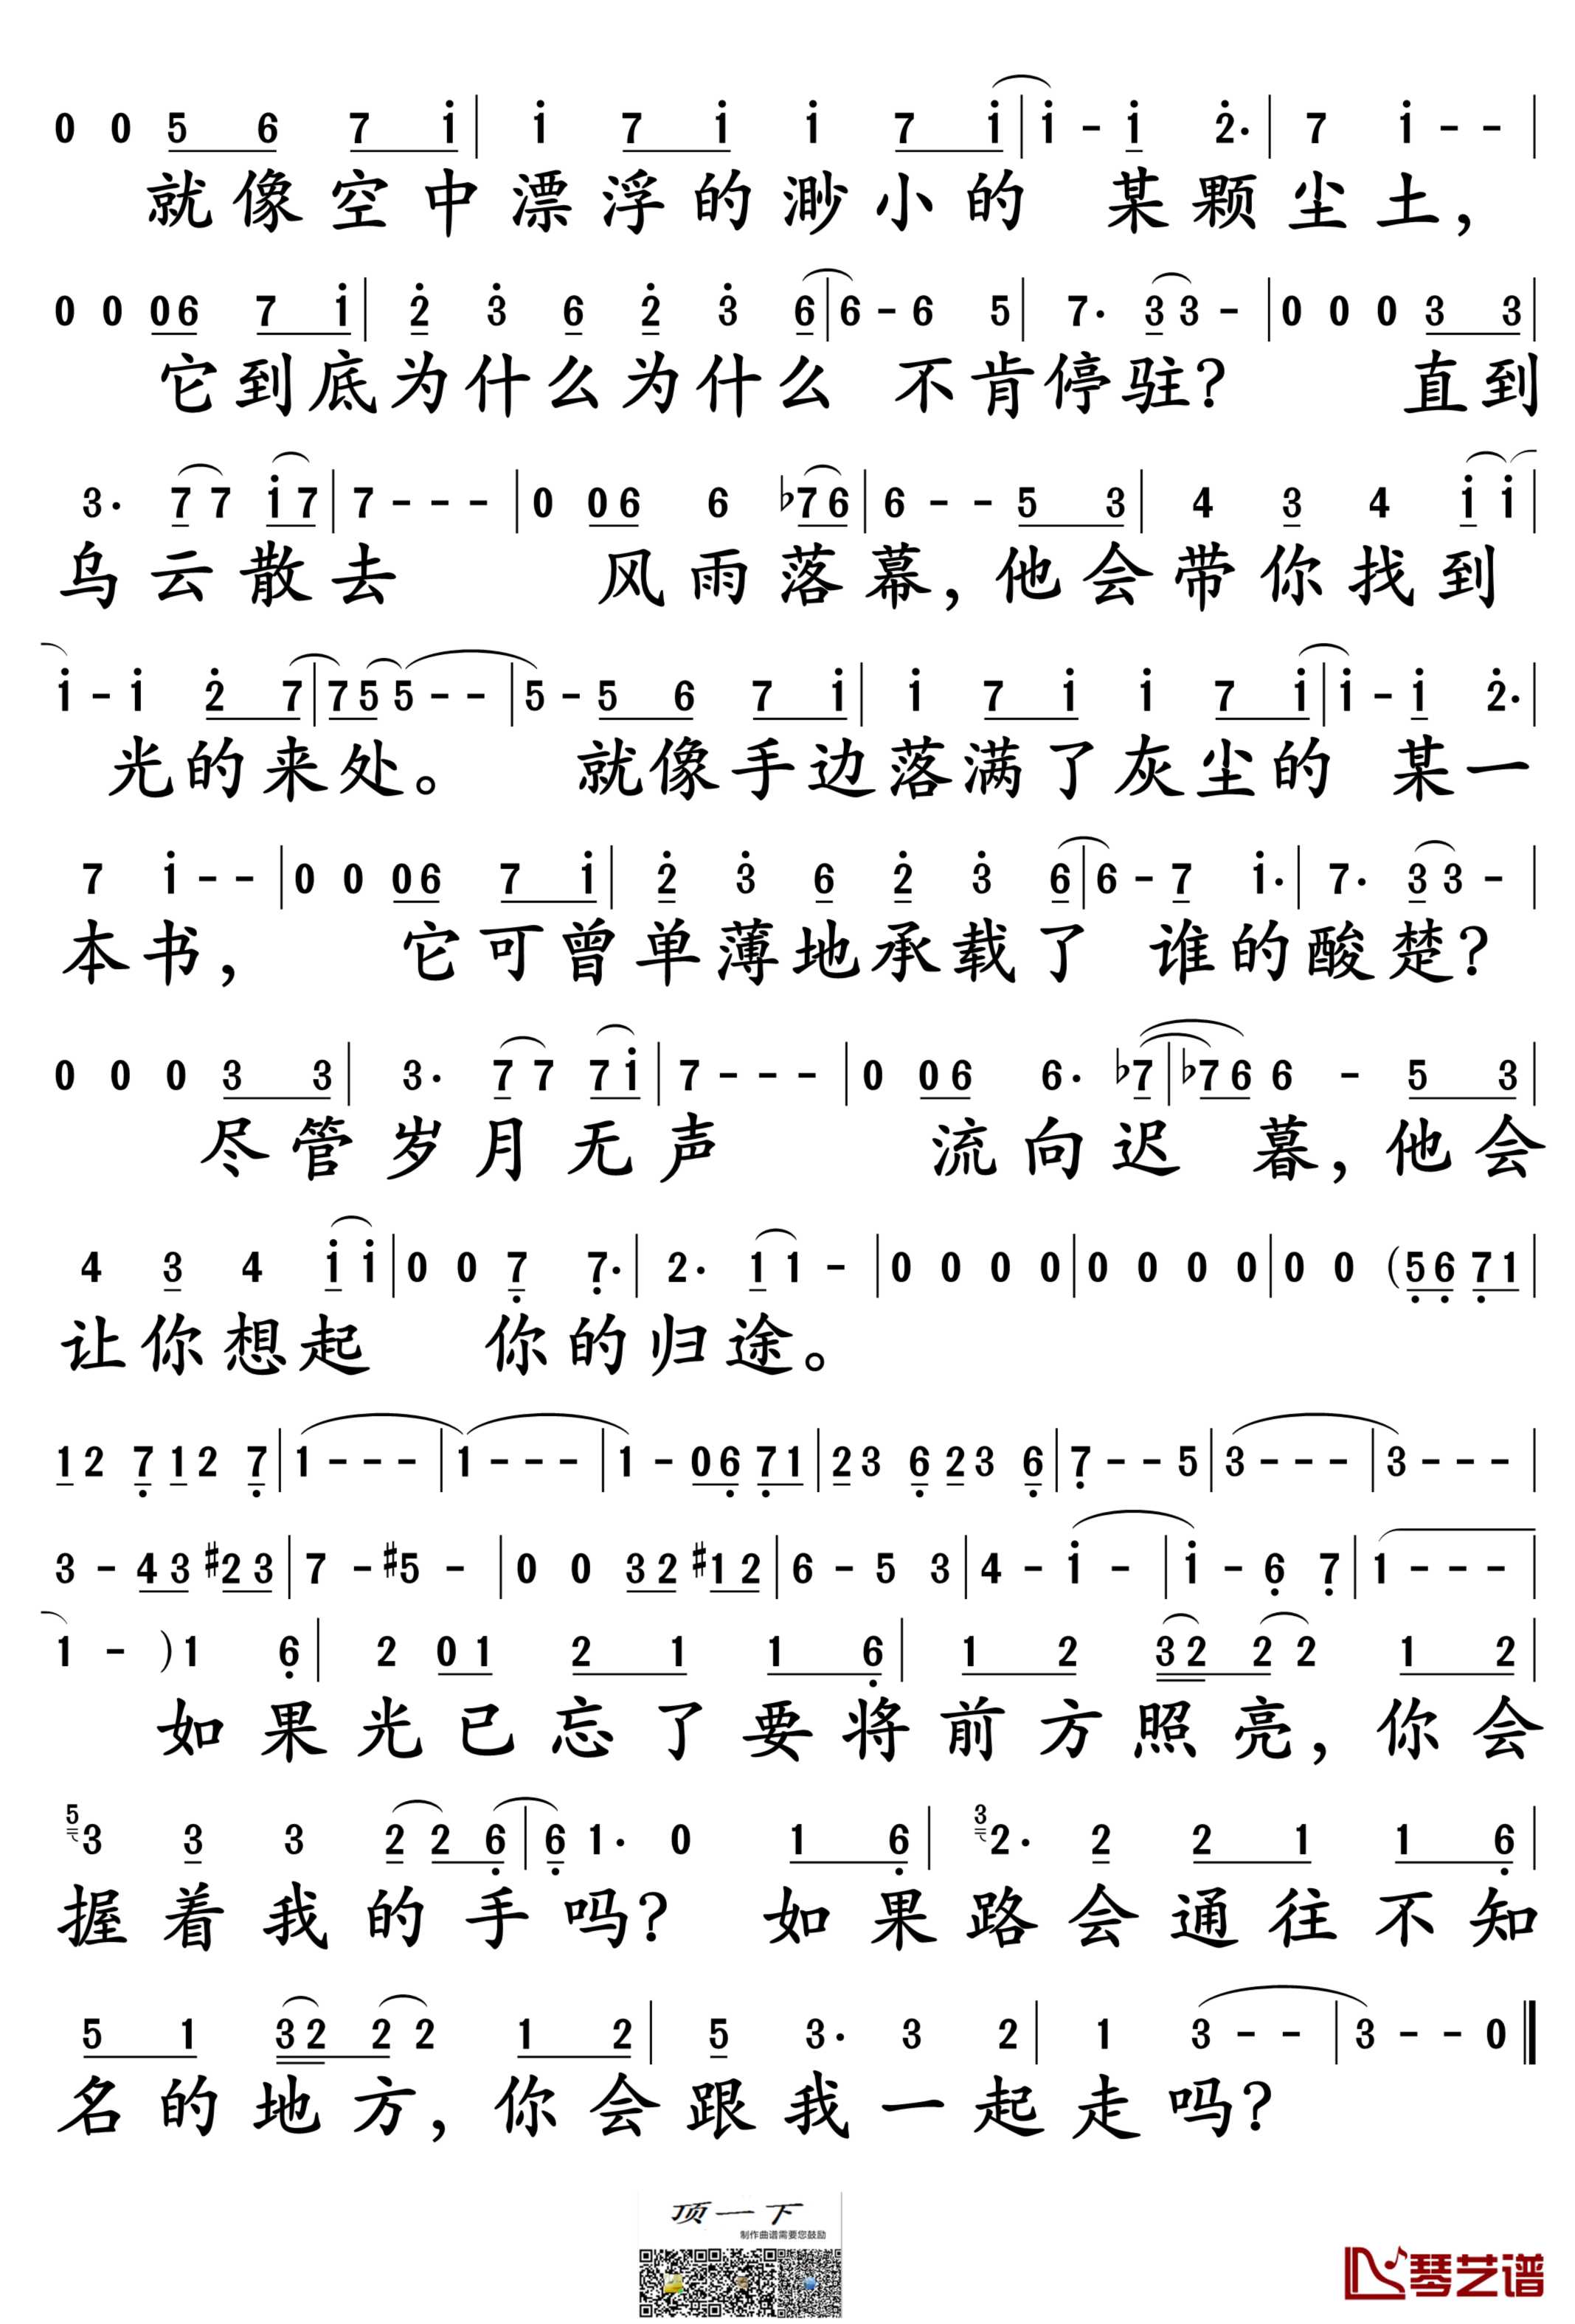 0 0 5 6 7 i | i 7 i i 7 i | i - i 2̇· | 7 i - - |
就像空中漂浮的渺小的 某颗尘土，
0 0 06 7 i | 2̇ 3̇ 6 2̇ 3̇ 6 | 6 - 6 5 | 7· 3 3 - | 0 0 0 3 3 |
它到底为什么为什么 不肯停驻？ 直到
3· 7 7 i7 | 7 - - - | 0 06 6 ♭76 | 6 - - 5 3 | 4 3 4 i i |
乌云散去 风雨落幕，他会带你找到
i - i 2̇ 7 | 75 5 - - | 5 - 5 6 7 i | i 7 i i 7 i | i - i 2̇· |
光的来处。 就像手边落满了灰尘的 某一
7 i - - | 0 0 06 7 i | 2̇ 3̇ 6 2̇ 3̇ 6 | 6 - 7 i· | 7· 3 3 - |
本书， 它可曾单薄地承载了 谁的酸楚？
0 0 0 3 3 | 3· 7 7 7i | 7 - - - | 0 06 6· ♭7 | ♭76 6 - 5 3 |
尽管岁月无声 流向迟 暮，他会
4 3 4 i i | 0 0 7̣ 7̣· | 2· 1 1 - | 0 0 0 0 | 0 0 0 0 | 0 0 (5̣6̣ 7̣1 |
让你想起 你的归途。
1 2 7̣ 1 2 7̣ | 1 - - - | 1 - - - | 1 - 06̣ 7̣1 | 2 3 6̣ 2 3 6̣ | 7̣ - - 5 | 3 - - - | 3 - - - |
3 - 43 #23 | 7 - #5 - | 0 0 32 #12 | 6 - 5 3 | 4 - i - | i - 6̣ 7̣ | 1 - - - |
1 - ) 1 6̣ | 2 01 2 1 1 6̣ | 1 2 32 2 2 1 2 |
如果光已忘了要将前方照亮，你会
5 3 3 3 2 2 6̣ | 6̣ 1· 0 1 6̣ | 3 2· 2 2 1 1 6̣ |
握着我的手吗？ 如果路会通往不知
5 1 32 2 2 1 2 | 5 3· 3 2 | 1 3 - - | 3 - - 0 ‖
名的地方，你会跟我一起走吗？
顶一下
制作曲谱需要您鼓励
琴艺谱